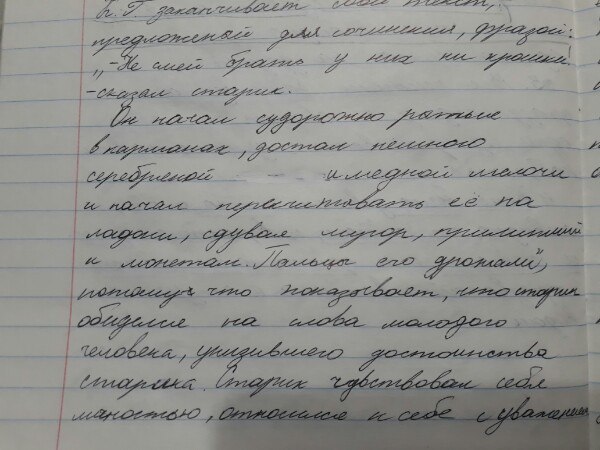 К.Г. заканчивает свой текст,
предложеный для сочинения, фразой:
„-Не смей брать у них ни крошки
-сказал старик.
Он начал судорожно рыться
в карманах, достал немного
серебреной и медной мелочи
и начал пересчитовать её на
ладони, сдувая мусор, прилипший
к монетам. Пальцы его дрожали",
потому что показывает, что старик
обиделся на слова молодого
человека, унизившего достоинства
старика. Старик чувствовал себя
личностью, относился к себе с уважением